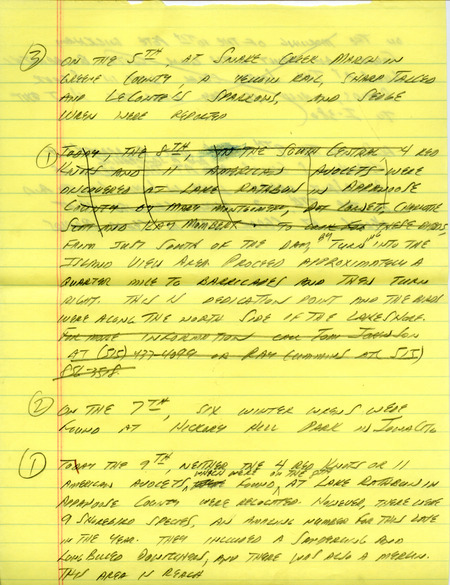 ③ ON THE 5TH, AT SNAKE CREEK MARSH IN
GREENE COUNTY, A YELLOW RAIL, SHARP TAILED
AND LECONTE'S SPARROWS, AND SEDGE
WREN WERE REPORTED
① TODAY, THE 8TH, IN THE SOUTH CENTRAL 4 RED
KNOTS AND 11 AMERICAN AVOCETS WERE
DISCOVERED AT LAKE RATHBUN IN APPANOOSE
COUNTY BY MARY MONTGOMERY,
AND RAY TO THESE BIRDS,
FROM JUST SOUTH OF THE DAM, TURN INTO THE
ISLAND VIEW AREA PROCEED APPROXIMATELY A
QUARTER MILE TO BARRICADES AND THEN TURN
RIGHT. THIS IS DEDICATION POINT AND THE BIRDS
WERE ALONG THE NORTH SIDE OF THE LAKESHORE.
FOR MORE INFORMATION CALL TOM JOHNSON
AT (515) 477-4099 OR RAY CUMMINS AT 515)
② ON THE 7TH, SIX WINTER WRENS WERE
FOUND AT HICKORY HILL PARK IN IOWA CITY
① TODAY THE 9TH, NEITHER THE 4 RED KNOTS OR 11
WHICH WERE ON THE
AMERICAN AVOCETS, FOUND, AT LAKE RATHBUN IN
APPANOOSE COUNTY WERE RELOCATED. HOWEVER, THERE WERE
9 SHOREBIRD SPECIES, AN AMAZING NUMBER FOR THIS DATE
IN THE YEAR. THEY INCLUDED A SANDERLING AND
LONG BILLED DOWITCHERS, AND THERE WAS ALSO A MERLIN.
THIS AREA IN REACH